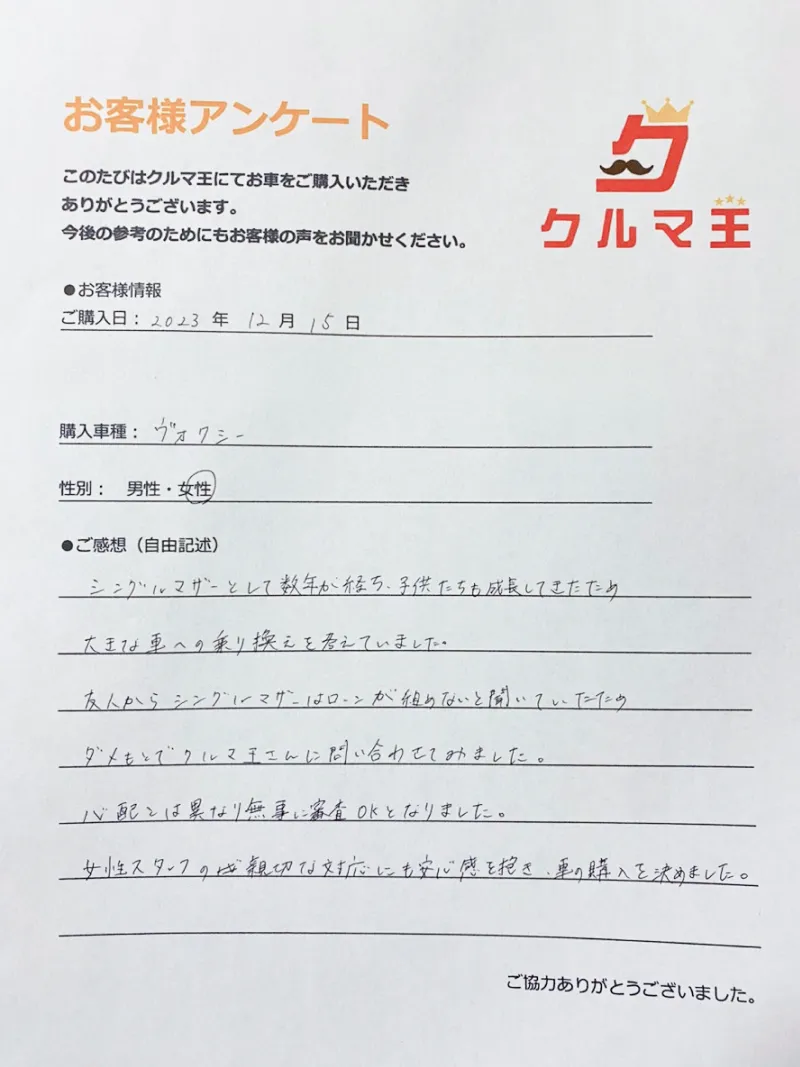 お客様アンケート
ク
クルマ王
このたびはクルマ王にてお車をご購入いただき
ありがとうございます。
今後の参考のためにもお客様の声をお聞かせください。
●お客様情報
ご購入日: 2023 年 12 月 15 日
購入車種: ヴォクシー
性別: 男性・女性
●ご感想（自由記述）
シングルマザーとして数年が経ち、子供たちも成長してきたため
大きな車への乗り換えを考えていました。
友人からシングルマザーはローンが組めないと聞いていたため
ダメもとでクルマ王さんに問い合わせてみました。
心配とは異なり無事に審査OKとなりました。
女性スタッフの親切な対応にも安心感を抱き、車の購入を決めました。
ご協力ありがとうございました。